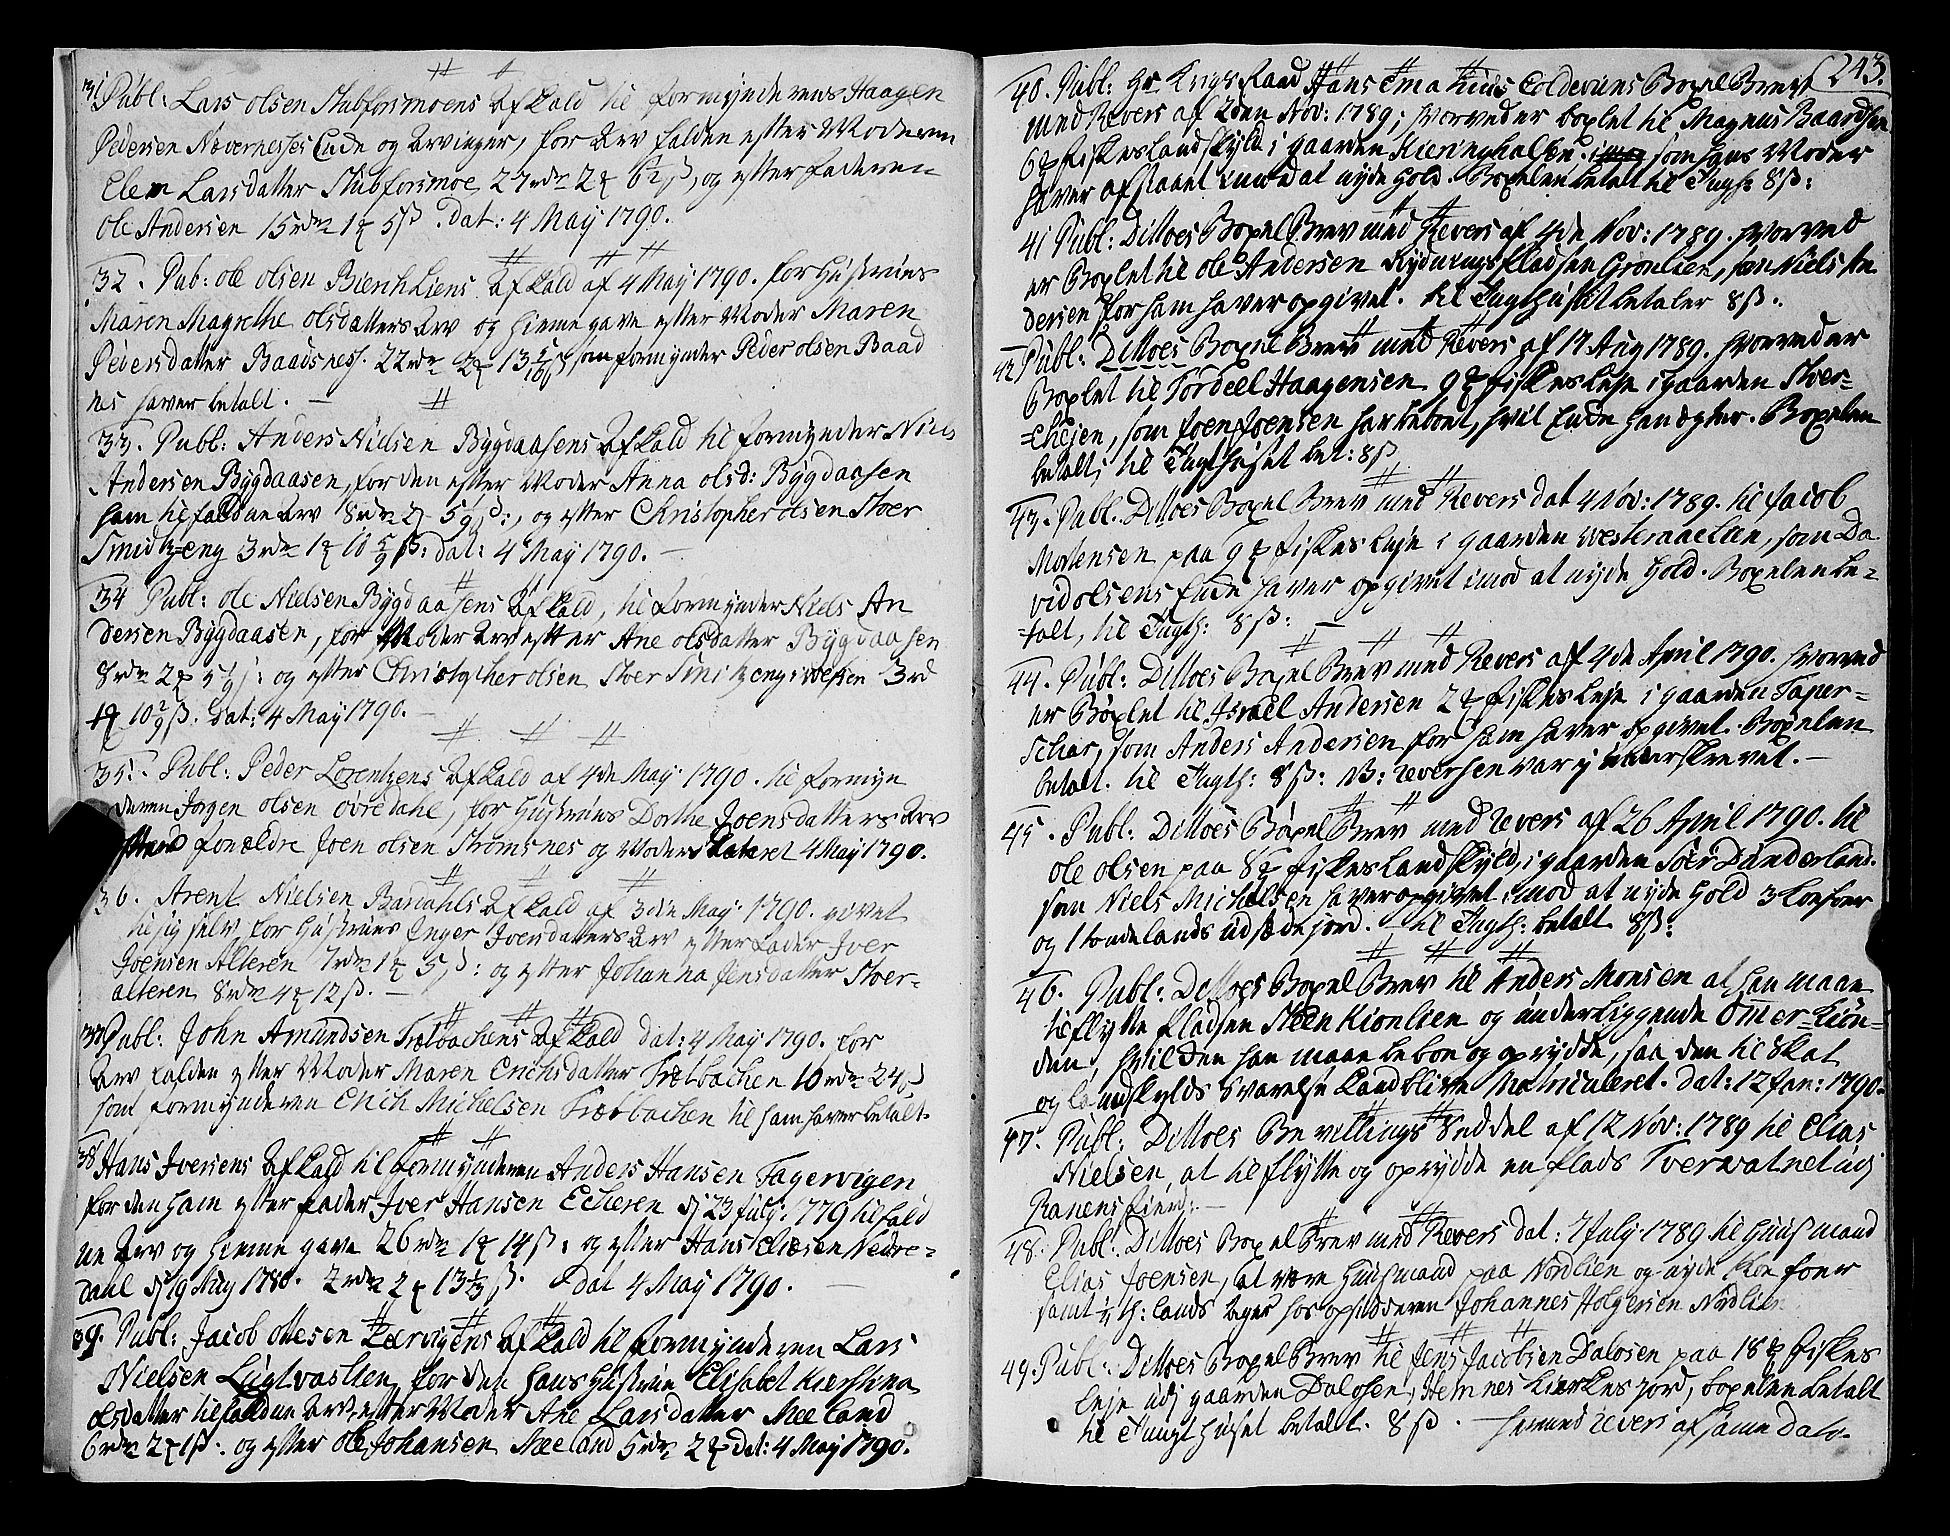 31 Publ: Lars olsen Stubforsmoens Afkald til formynderens Haagen
Pedersen Nævernesses Enke og Arvinger, for Arv falden efter Moderen
Elen Larsdatter Stubforsmoe 27 rdr 2 ₻ 6½ ß, og efter faderen
Ole Andersen 15 rdr 1 ₻ 5 ß. Dat: 4 May 1790.
32. Pub: ole olsen Bierchliens Afkald af 4 May 1790. for Hustruens
Maren Magrethe olsdatters Arv og hiemmegave efter Moder Maren
Pedersdatter Baadsnes. 22 rdr 2 ₻ 13 ß som formynder Peder olsen Baad
nes haver betalt. —
33. Publ: Anders Nielsen Bygdaasens Afkald til formynder Niels
Andersen Bygdaasen, for den efter Moder Anna olsd: Bygdaasen
ham tilfaldne Arv 8 rdr 2 ₻ 5 ß:, og efter Christopher olsen Stoer
Smidtzeng 3 rdr 1 ₻ 10 5/9 ß: dat: 4 May 1790. —
34 Publ: ole Nielsen Bygdaasens Afkald, til formynder Niels An
dersen Bygdaasen, for Moder Arv efter Ane olsdatter Bygdaasen
8 rdr 2 ₻ 5 ß: og efter Christopher olsen Stoer Smitzeng 3 rd
1 ₻ 10 2/9 ß. dat: 4 May 1790. —
35. Publ: Peder Lorentzens Afkald af 4de May 1790. til formyn
deren Jorgen olsen Øvredahl, for Hustruens Dorthe Joensdatters Arv
forældre Joen olsen Strømsnes og Moder dateret 4 May 1790.
36. Arent Nielsen Bardahls Afkald af 3die May 1790. givet
til sig selv for Hustruens Inger Iversdatters Arv efter fader Iver
Joensen Alteren 7 rdr 1 ₻ 5 ß: og efter Johanna Jensdatter Stoer-
alteren 8 rdr 4 ₻ 12 ß. —
37 Publ: John Amundsen Trætbachens Afkald dat: 4 May 1790. for
Arv falden efter Moder Maren Erichsdatter Trætbachen 10 rdr 24 ß
som formynderen Erich Michelsen Trætbachen til ham haver betalt.
38 Hans Iversens Afkald til formynderen Anders Hansen Fagervigen
for den ham efter fader Iver Hansen Echeren d 23 July 1779 tilfald
ne Arv og hiemmegave 26 rdr 1 ₻ 14 ß: og efter Hans Eliæsen Nedre-
dahl d 19 May 1780. 2 rdr 2 ₻ 13⅓ ß. dat 4 May 1790. —
39. Publ: Jacob Ottesen Lærvigens Afkald til formynderen Lars
Nielsen Lugtvasllen, for den hans Hustrue Elisabet Kierstina
olsdatter tilfaldne Arv efter Moder Ane Larsdatter Mæeland
6 rdr 2 ₻ 1 ß. og efter Ole Johansen Mæeland 5 rdr 2 ₻ dat: 4 May 1790.
243.
40. Publ: Hr Krigs Raad Hans Ema Coldevins Boxel Brev
med Revers af 2den Nov: 1789; hvorved er boxlet til Magnus Baardsen
6 ₻ fiskes landskyld i gaarden Kieringhalsen som hans Moder
haver afstaaet imod at nyde hold. Boxelen betalt til Tugth 8 ß:
41 Publ: Dittoes Boxel Brev med Revers af 4de Nov: 1789. hvorved
er Boxlet til ole Andersen Rydnings Pladsen Grønlien, som Niels An
dersen for ham haver opgivet. til Tugthuset betaler 8 ß.
42 Publ: Dittoes Boxel Brev med Revers af 17 Aug 1789. hvorved er
Boxlet til Tordeel Haagensen 9 ₻ fiskes leje i gaarden Stor-
som Joen Joensen har beboet, hvis Enke han ægter. Boxelen
betalt; til Tugthuset bet: 8 ß
43. Publ. Dittoes Boxel Brev med Revers dat 4 Nov: 1789. til Jacob
Mortensen paa 9 ₻ fiskes leje i gaarden som Da
vid olsens Enke haver opgivet imod at nyde hold. Boxelen be-
talt, til Tugth: 8 ß: —
44. Publ: Dittoes Boxel Brev med Revers af 4de April 1790. hvorved
er Boxlet til Israel Andersen 2 ₻ fiskes leje i gaarden Taper-
schar, som Anders Andersen for ham haver opgivet. Boxelen
betalt. til Tugth: 8 ß: NB: Reversen var ej underskrevet. —
45. Publ: Dittoes Boxel Brev med revers af 26 April 1790. til
ole olsen paa 8 ₻ fiskes landskyld i gaarden Stoer Dunderland.
som Niels Michelsen haver opgivet imod at nyde hold 3 Koefoer
og 1 tønde lands udsæde jord. — til Tugth: betalt 8 ß:
46. Publ: Dittoes Boxel Brev til Anders Monsen at han maae
tilflytte Pladsen Steenkionlien og underliggende Ømer-Lien-
den, hvilcken han maae beboe og oprydde, saa den til Skat
og landskylds Svarelse kand blive Matriculeret. dat: 12 Jan: 1790.
47. Publ: Dittoes Bevillings Seddel af 12 Nov: 1789 til Elias
Nielsen, at tilflytte og oprydde en Plads Tvervatnet udj
Ranens fierd. —
48. Publ: Dittoes Boxel brev med Revers dat: 7 July 1789 til Huusmand
Elias Joensen, at være Huusmand paa Nordlien og nyde Koe foer
samt ½ t: lands ager hos opsidderen Johannes Holgersen Nordlien
49. Publ: Dittoes Boxel Brev til Jens Jacobsen Dalosen paa 18 ₻ fiskes
leje udj gaarden Dalosen, Hemnes Kierkes jord, boxelen betalt
til Tugthuset betalt. 8 ß. — hermed revers af samme Dato.